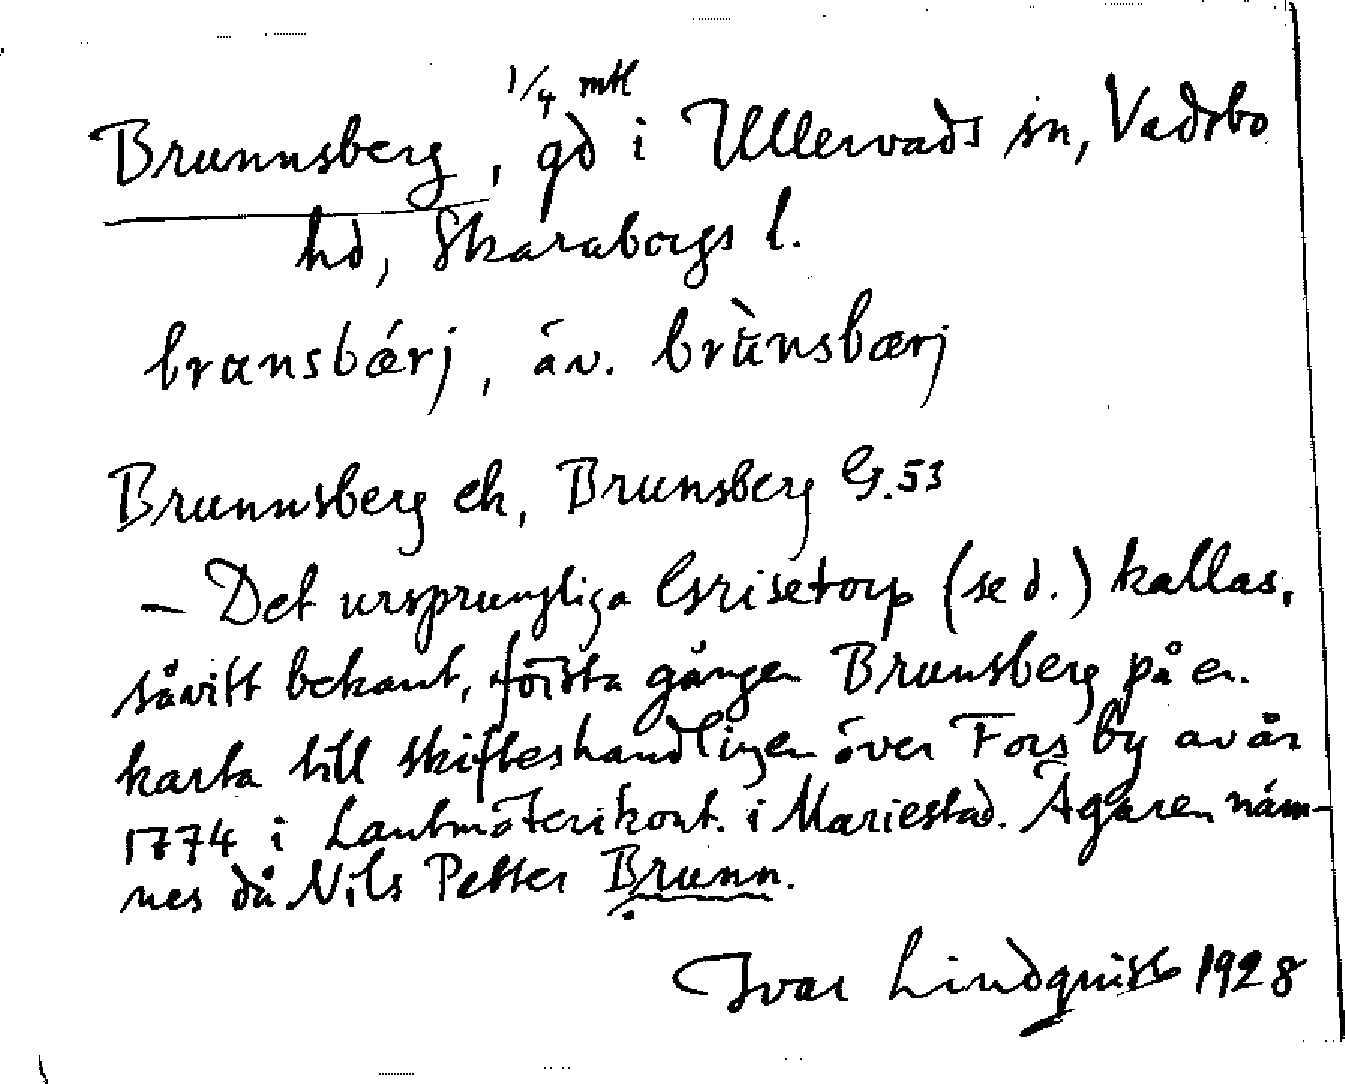 Brunnsberg, 1/4 mtl gd i Ullervads sn, Vadsbo
hd, Skaraborgs l.
brunsbǽrj, äv. brùnsbærj
Brunnsberg ek, Brunsberg G.53
— Det ursprungliga Grisetorp (se d.) kallas,
såvitt bekant, första gången Brunsberg på en
karta till skifteshandlingen över Fors by av år
1774 i Lantmäterikont. i Mariestad. Ägaren näm-
nes då Nils Petter Brunn.
Ivar Lindquist 1928